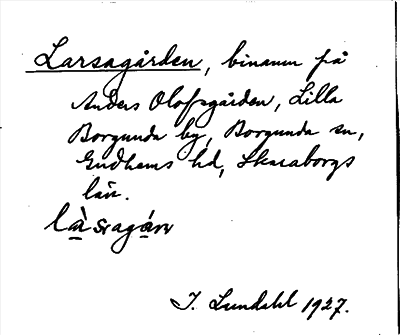 Larsagården, binamn på
Anders Olofsgården, Lilla
Borgunda by, Borgunda sn,
Gudhems hd, Skaraborgs
län.
là̱sragá̱ṉ
I. Lundahl 1927.